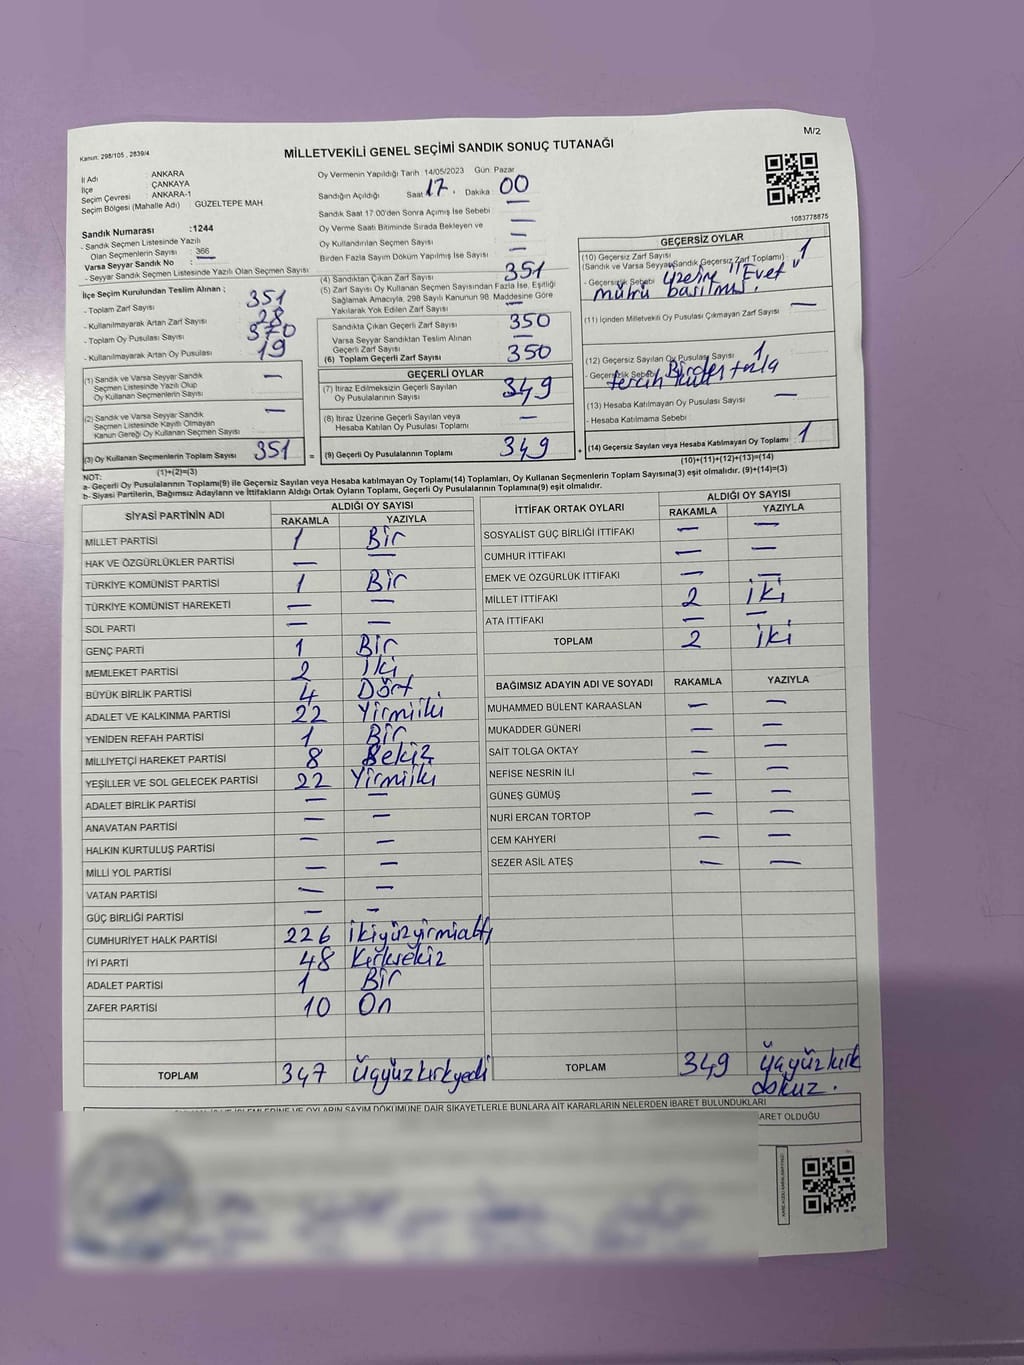 M/2
Kanun: 298/105 , 2839/4
MİLLETVEKİLİ GENEL SEÇİMİ SANDIK SONUÇ TUTANAĞI
İl Adı : ANKARA
İlçe : ÇANKAYA
Seçim Çevresi : ANKARA-1
Seçim Bölgesi (Mahalle Adı) : GÜZELTEPE MAH
Sandık Numarası :1244
- Sandık Seçmen Listesinde Yazılı
Olan Seçmenlerin Sayısı : 366
Varsa Seyyar Sandık No : —
- Seyyar Sandık Seçmen Listesinde Yazılı Olan Seçmen Sayısı
İlçe Seçim Kurulundan Teslim Alınan ;
- Toplam Zarf Sayısı 351
- Kullanılmayarak Artan Zarf Sayısı 28
- Toplam Oy Pusulası Sayısı 370
- Kullanılmayarak Artan Oy Pusulası 19
(1) Sandık ve Varsa Seyyar Sandık
Seçmen Listesinde Yazılı Olup
Oy Kullanan Seçmenlerin Sayısı —
(2) Sandık ve Varsa Seyyar Sandık
Seçmen Listesinde Kayıtlı Olmayan
Kanun Gereği Oy Kullanan Seçmen Sayısı —
(3) Oy Kullanan Seçmenlerin Toplam Sayısı 351
(1)+(2)=(3)
Oy Vermenin Yapıldığı Tarih :14/05/2023 Gün: Pazar
Sandığın Açıldığı Saat : 17 . Dakika : 00
Sandık Saat 17:00'den Sonra Açımış İse Sebebi —
Oy Verme Saati Bitiminde Sırada Bekleyen ve
Oy Kullandırılan Seçmen Sayısı —
Birden Fazla Sayım Döküm Yapılmış İse Sayısı —
(4) Sandıktan Çıkan Zarf Sayısı 351
(5) Zarf Sayısı Oy Kullanan Seçmen Sayısından Fazla İse, Eşitliği
Sağlamak Amacıyla, 298 Sayılı Kanunun 98. Maddesine Göre
Yakılarak Yok Edilen Zarf Sayısı —
Sandıkta Çıkan Geçerli Zarf Sayısı 350
Varsa Seyyar Sandıktan Teslim Alınan
Geçerli Zarf Sayısı —
(6) Toplam Geçerli Zarf Sayısı 350
GEÇERLİ OYLAR
(7) İtiraz Edilmeksizin Geçerli Sayılan
Oy Pusulasının Sayısı 349
(8) İtiraz Üzerine Geçerli Sayılan veya
Hesaba Katılan Oy Pusulası Toplamı —
= (9) Geçerli Oy Pusulalarının Toplamı 349
1083778875
GEÇERSİZ OYLAR
(10) Geçersiz Zarf Sayısı
(Sandık ve Varsa Seyyar Sandık Geçersiz Zarf Toplamı) : 1
- Geçersizlik Sebebi : üzerine "Evet"
mührü basılmış.
(11) İçinden Milletvekili Oy Pusulası Çıkmayan Zarf Sayısı —
(12) Geçersiz Sayılan Oy Pusulası Sayısı 1
- Geçersizlik Sebebi : Birden fazla
tercih
(13) Hesaba Katılmayan Oy Pusulası Sayısı —
- Hesaba Katılmama Sebebi :
+ (14) Geçersiz Sayılan veya Hesaba Katılmayan Oy Toplamı : 1
(10)+(11)+(12)+(13)=(14)
NOT:
a- Geçerli Oy Pusulalarının Toplamı(9) ile Geçersiz Sayılan veya Hesaba katılmayan Oy Toplamı(14) Toplamları, Oy Kullanan Seçmenlerin Toplam Sayısına(3) eşit olmalıdır. (9)+(14)=(3)
b- Siyasi Partilerin, Bağımsız Adayların ve İttifakların Aldığı Ortak Oyların Toplamı, Geçerli Oy Pusulalarının Toplamına(9) eşit olmalıdır.
SİYASİ PARTİNİN ADI ALDIĞI OY SAYISI
RAKAMLA YAZIYLA
MİLLET PARTİSİ 1 Bir
HAK VE ÖZGÜRLÜKLER PARTİSİ — —
TÜRKİYE KOMÜNİST PARTİSİ 1 Bir
TÜRKİYE KOMÜNİST HAREKETİ — —
SOL PARTİ — —
GENÇ PARTİ 1 Bir
MEMLEKET PARTİSİ 2 İki
BÜYÜK BİRLİK PARTİSİ 4 Dört
ADALET VE KALKINMA PARTİSİ 22 Yirmiiki
YENİDEN REFAH PARTİSİ 1 Bir
MİLLİYETÇİ HAREKET PARTİSİ 8 Sekiz
YEŞİLLER VE SOL GELECEK PARTİSİ 22 Yirmiiki
ADALET BİRLİK PARTİSİ — —
ANAVATAN PARTİSİ — —
HALKIN KURTULUŞ PARTİSİ — —
MİLLİ YOL PARTİSİ — —
VATAN PARTİSİ — —
GÜÇ BİRLİĞİ PARTİSİ — —
CUMHURİYET HALK PARTİSİ 226 ikiyüzyirmialtı
İYİ PARTİ 48 Kırksekiz
ADALET PARTİSİ 1 Bir
ZAFER PARTİSİ 10 On
TOPLAM 347 Üçyüzkırkyedi
İTTİFAK ORTAK OYLARI ALDIĞI OY SAYISI
RAKAMLA YAZIYLA
SOSYALİST GÜÇ BİRLİĞİ İTTİFAKI — —
CUMHUR İTTİFAKI — —
EMEK VE ÖZGÜRLÜK İTTİFAKI — —
MİLLET İTTİFAKI 2 iki
ATA İTTİFAKI — —
TOPLAM 2 iki
BAĞIMSIZ ADAYIN ADI VE SOYADI RAKAMLA YAZIYLA
MUHAMMED BÜLENT KARAASLAN — —
MUKADDER GÜNERİ — —
SAİT TOLGA OKTAY — —
NEFİSE NESRİN İLİ — —
GÜNEŞ GÜMÜŞ — —
NURİ ERCAN TORTOP — —
CEM KAHYERİ — —
SEZER ASİL ATEŞ — —
TOPLAM 349 Üçyüzkırk
dokuz.
OYLARIN SAYIM DÖKÜMÜNE DAİR ŞİKAYETLERLE BUNLARA AİT KARARLARIN NELERDEN İBARET BULUNDUKLARI
ARET OLDUĞU